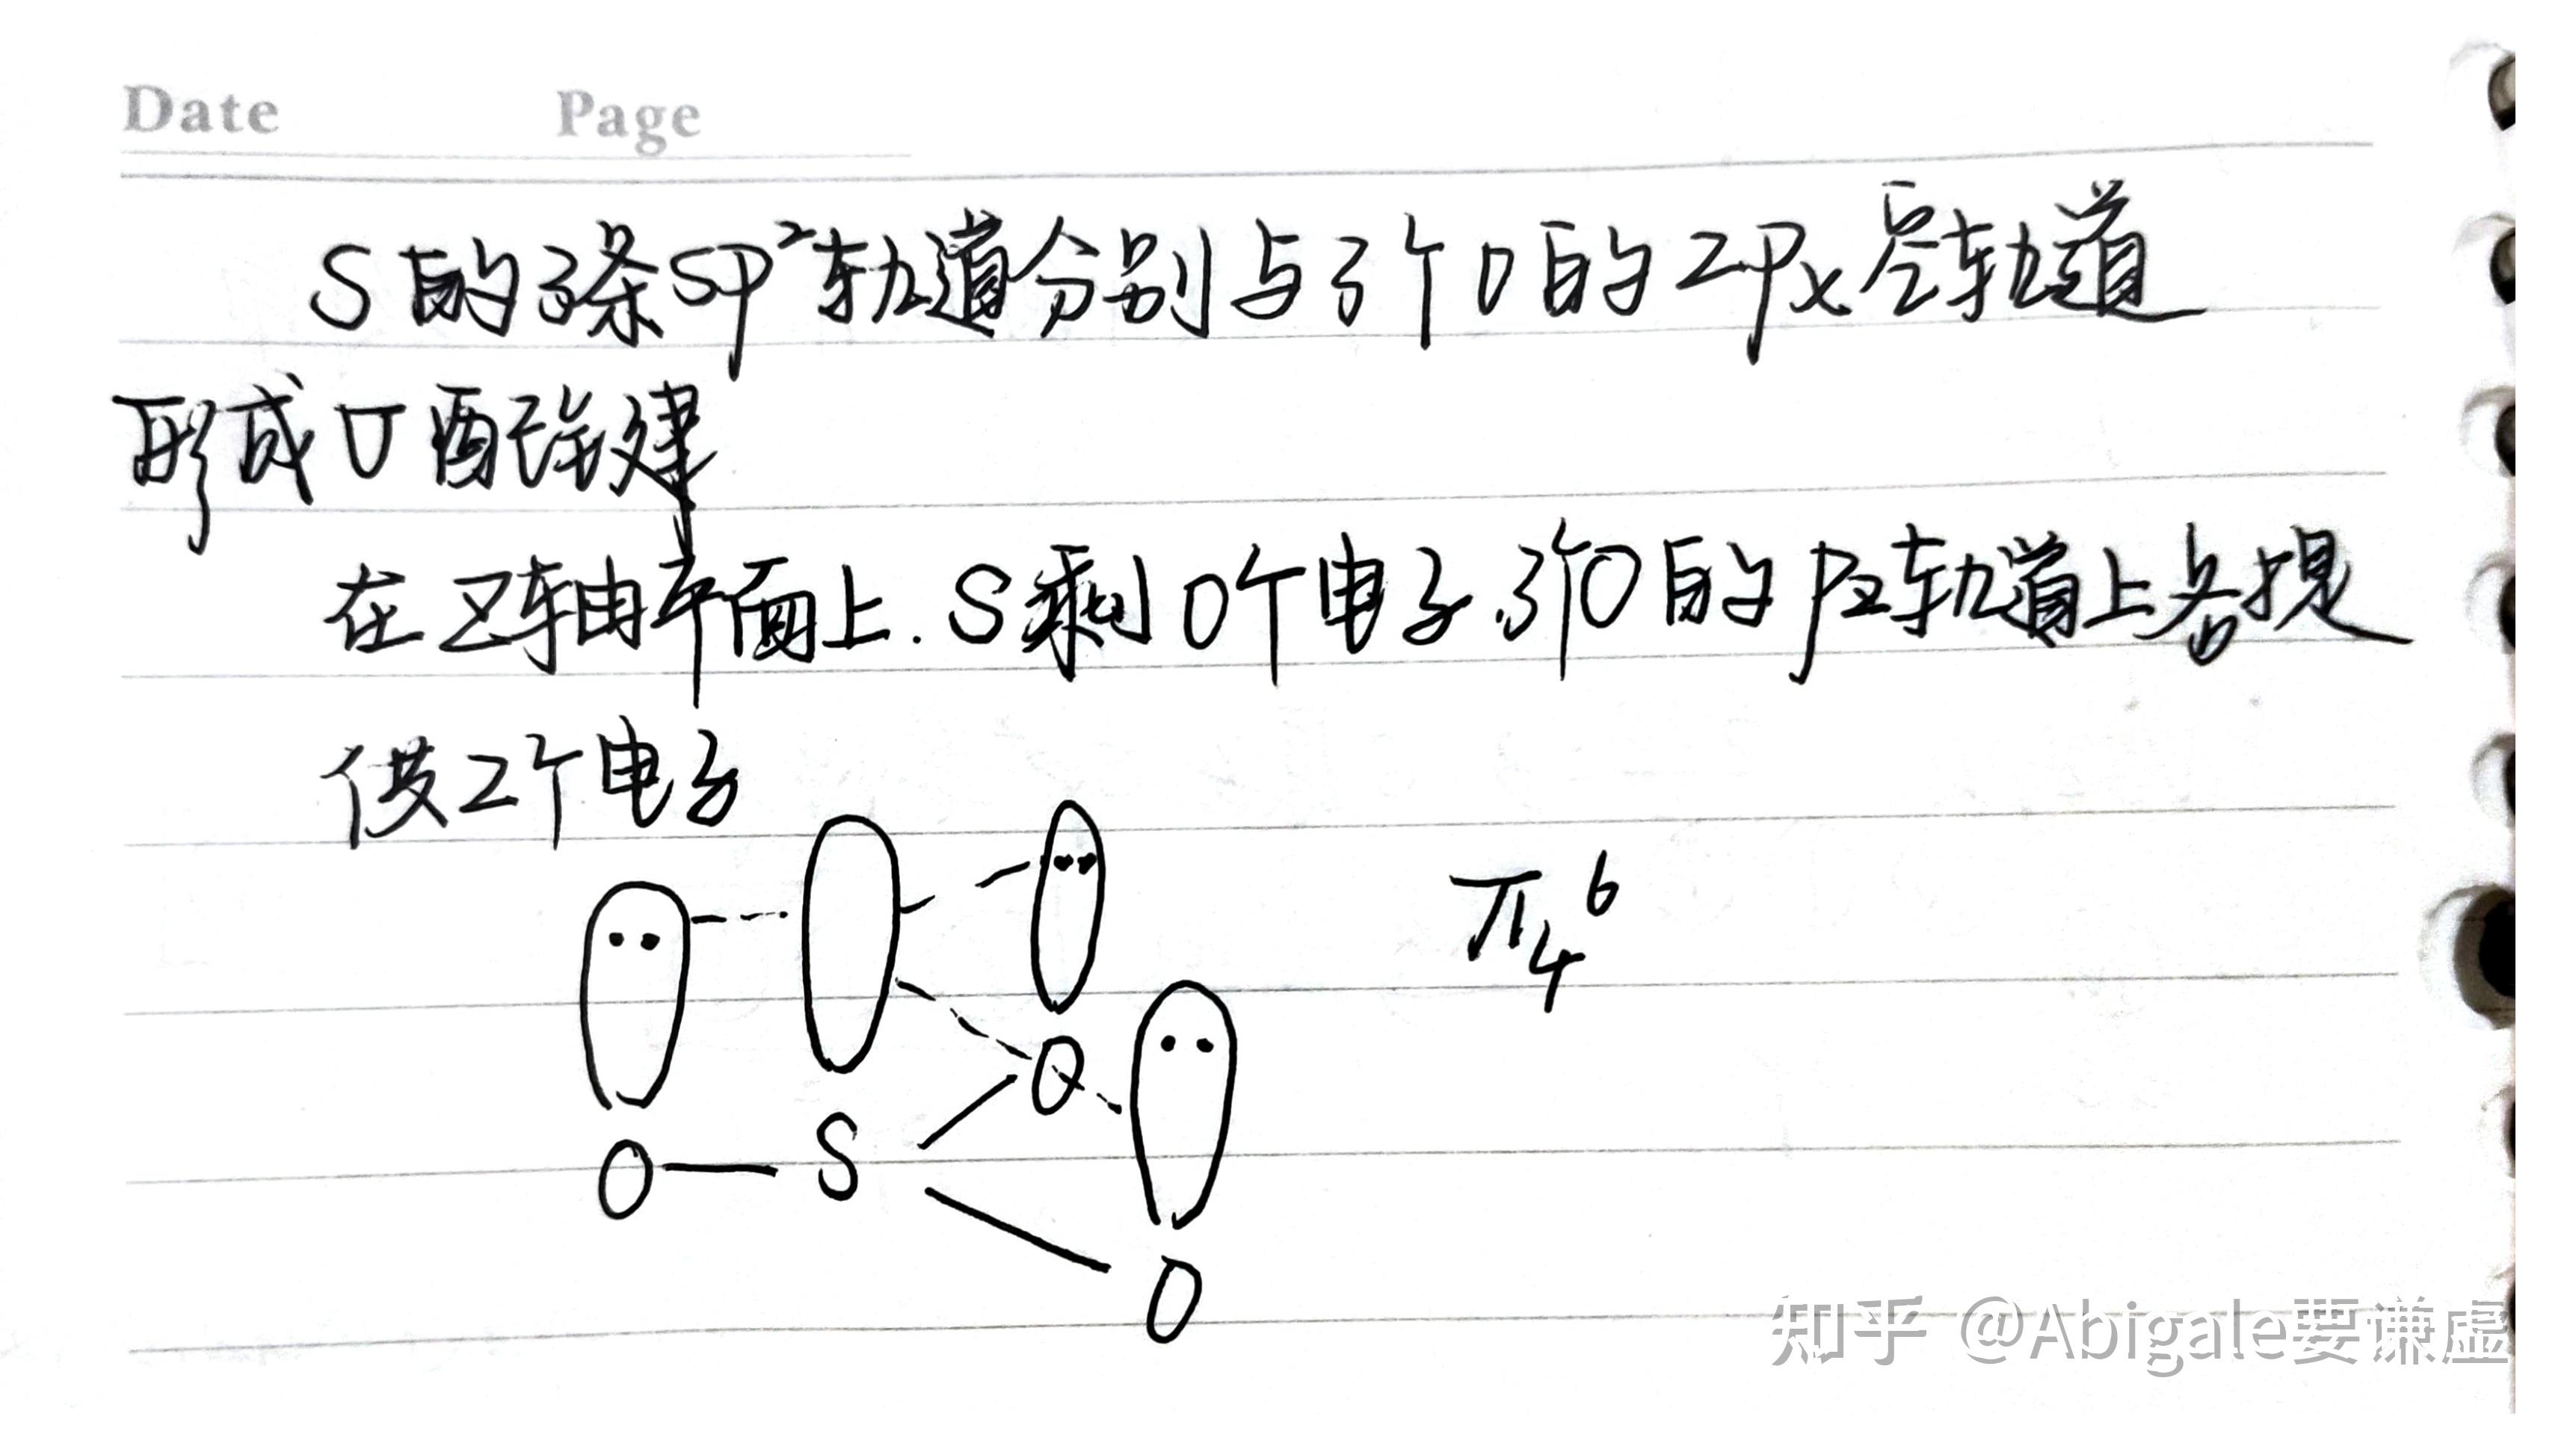 Date Page
S的3条SP²轨道分别与3个O的2Px空轨道
形成σ配位键
在Z轴平面上.S剩0个电子.3个O的Pz轨道上各提
供2个电子
π₄⁶
O S O O
知乎 @Abigale要谦虚